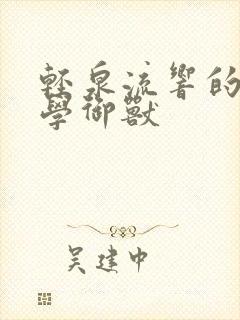 輕泉流響的
學御獸
吳建中